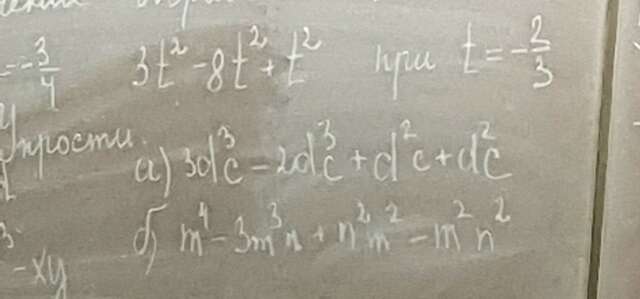 = -3/4 3t² - 8t² + t² при t = -2/3
Упрости
а) 3dc³ - 2dc³ + d²c + dc²
б) m⁴ - 3m³n + n²m² - m²n²
-xy